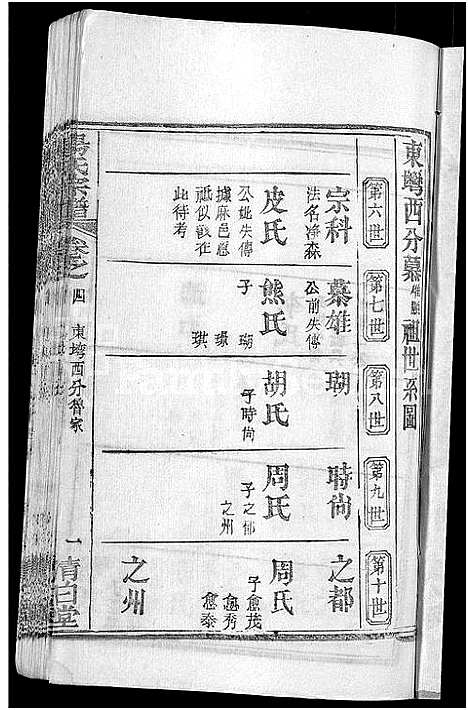 東塆西分慕雄鵬祖世系圖
第六世
宗科
法名淨森
皮氏
公妣失傳
據麻邑惠
祗似戩在
此待考
第七世
慕雄
公前失傳
熊氏
子 瑚
璟
琪
第八世
瑚
胡氏
子時尚
第九世
時尚
周氏
子之都
之州
第十世
之都
周氏
子愈茂
愈秀
愈泰
之州
氏宗譜
卷之
四
東塆西分魯家
一
清白堂